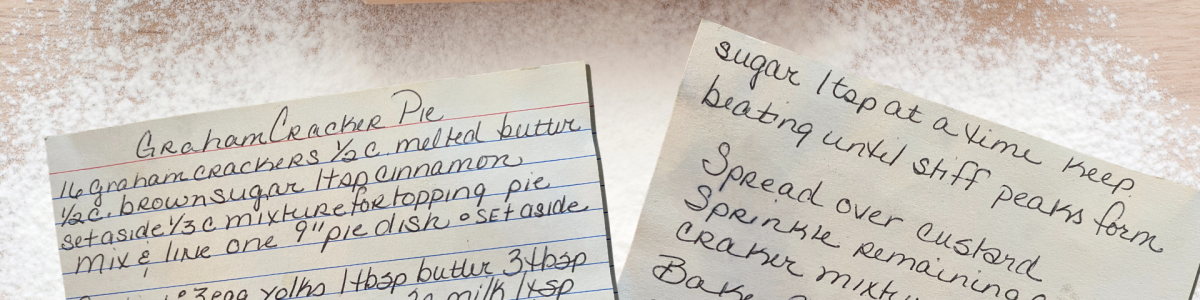 Graham Cracker Pie
16 graham crackers ½ c melted butter
½ c. brown sugar 1 tsp cinnamon
set aside ⅓ c mixture for topping pie
mix & line one 9" pie dish • set aside
3 egg yolks 1 tbsp butter 3 tbsp
milk 1 tsp
sugar 1 tsp at a time keep
beating until stiff peaks form
Spread over custard
Sprinkle remaining
craker
Bake